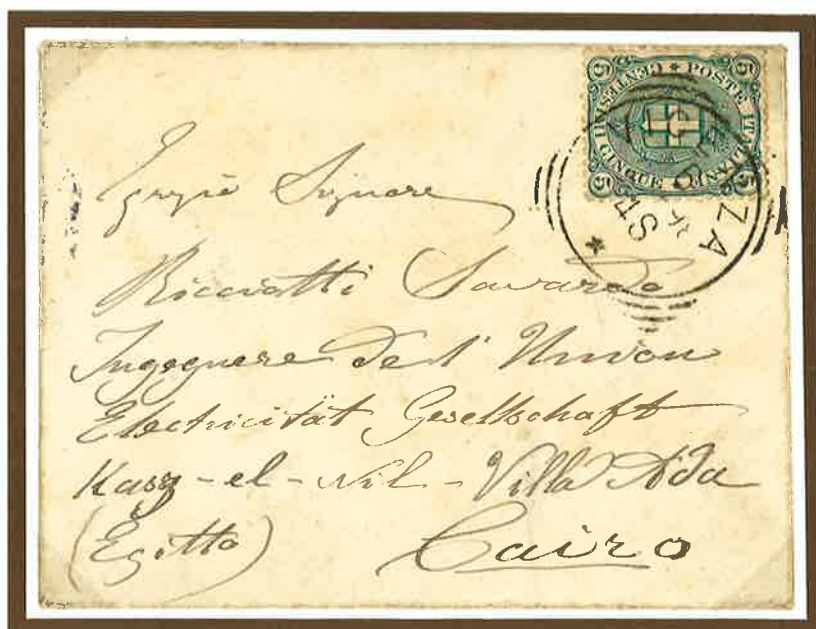 POSTE ITALIANE
CENTESIMI CINQUE
5 5 5 5
Egregio Signore
Ricciotti
Ingegnere de l' Union
Electricität Gesellschaft
Kasz-el-Nil-Villa Ada
(Egitto) Cairo